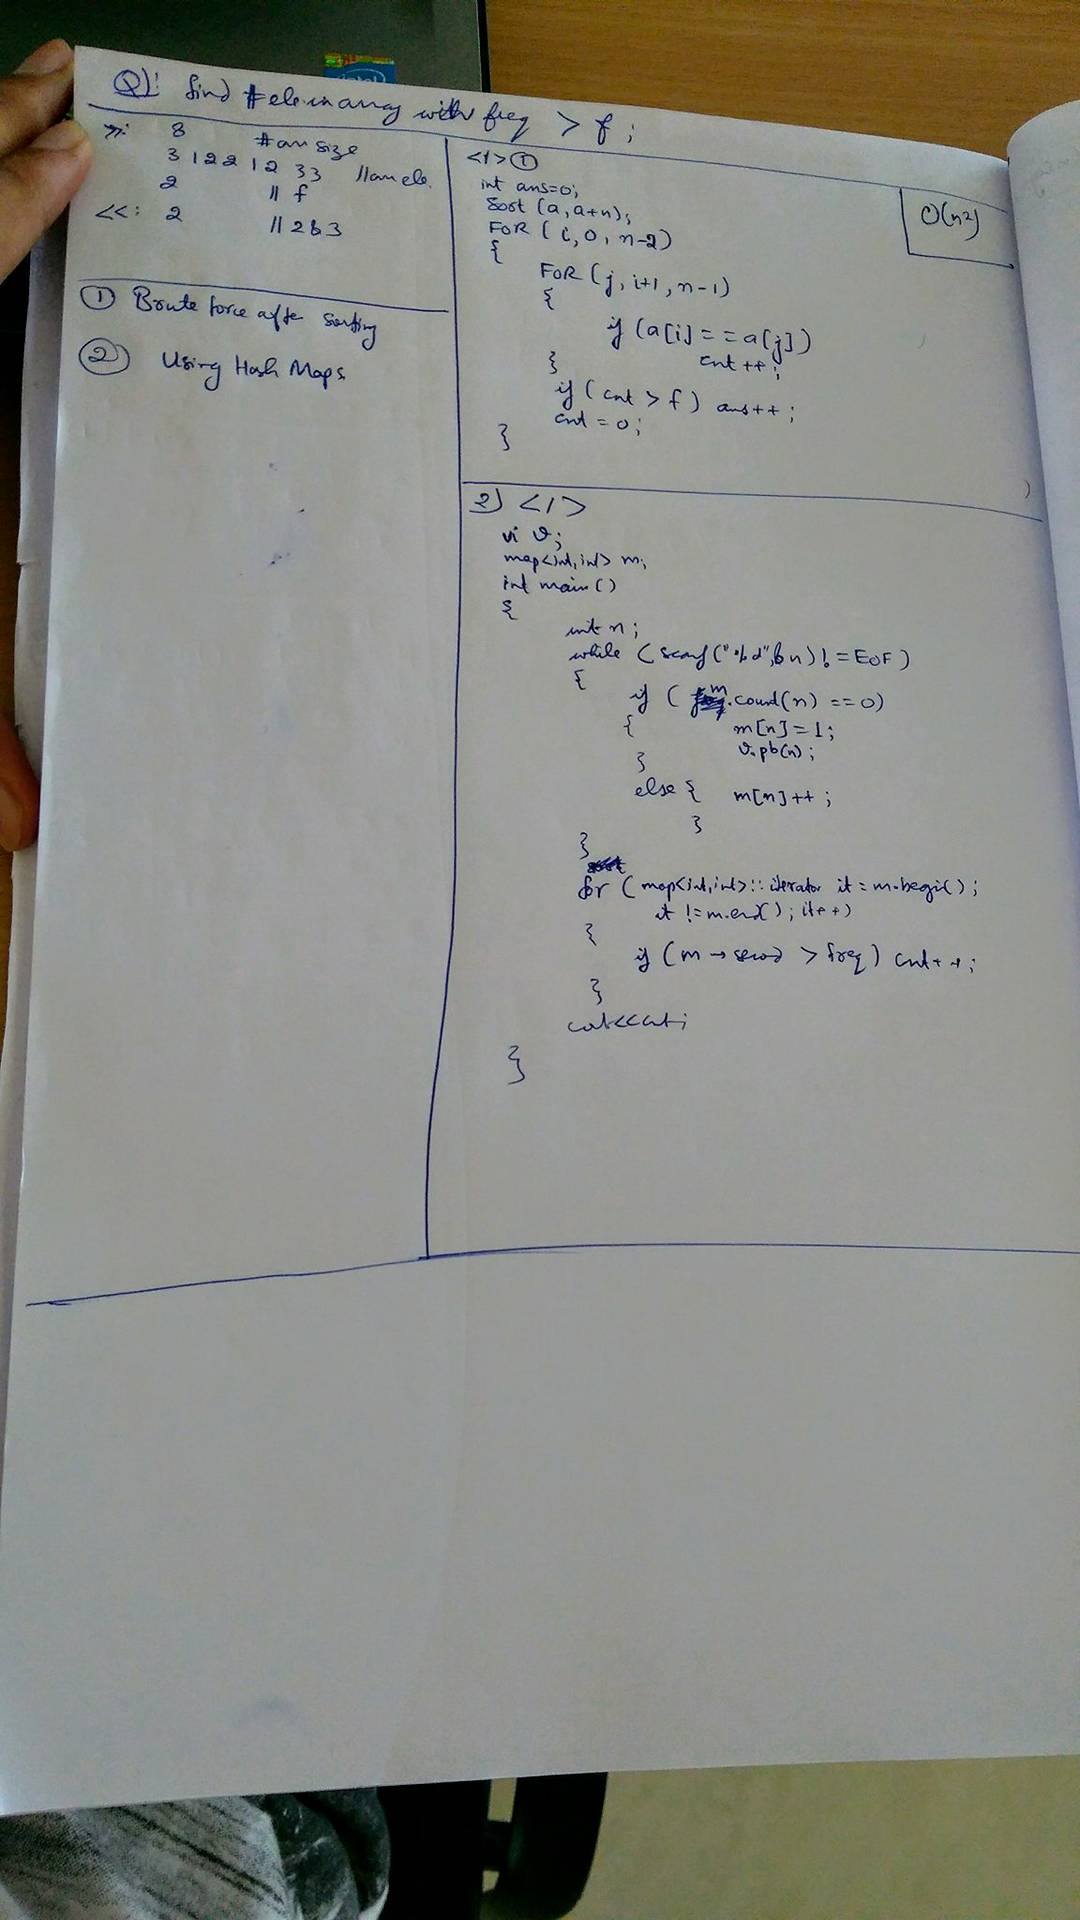 Q1: find #ele in array with freq > f ;
>>: 8 #arr size
3 1 2 2 1 2 3 3 //arr ele.
2 // f
<<: 2 // 2 & 3
① Brute force after sorting
② Using Hash Maps
<1> ①
O(n²)
int ans=0;
Sort (a, a+n);
FOR ( i, 0, n-2)
{
FOR (j, i+1, n-1)
{
if (a[i] == a[j])
cnt ++ ;
}
if ( cnt > f ) ans++ ;
cnt = 0 ;
}
2) <1>
vi v;
map<int, int> m;
int main ()
{
int n ;
while ( scanf ("%d", & n) != EOF )
{
if ( m.count(n) == 0)
{ m[n] = 1;
v.pb(n);
}
else { m[n]++ ;
}
}
for ( map<int,int>:: iterator it = m.begi();
it != m.end(); it++)
{
if (m → second > freq) cnt++;
}
cout<<cnt;
}